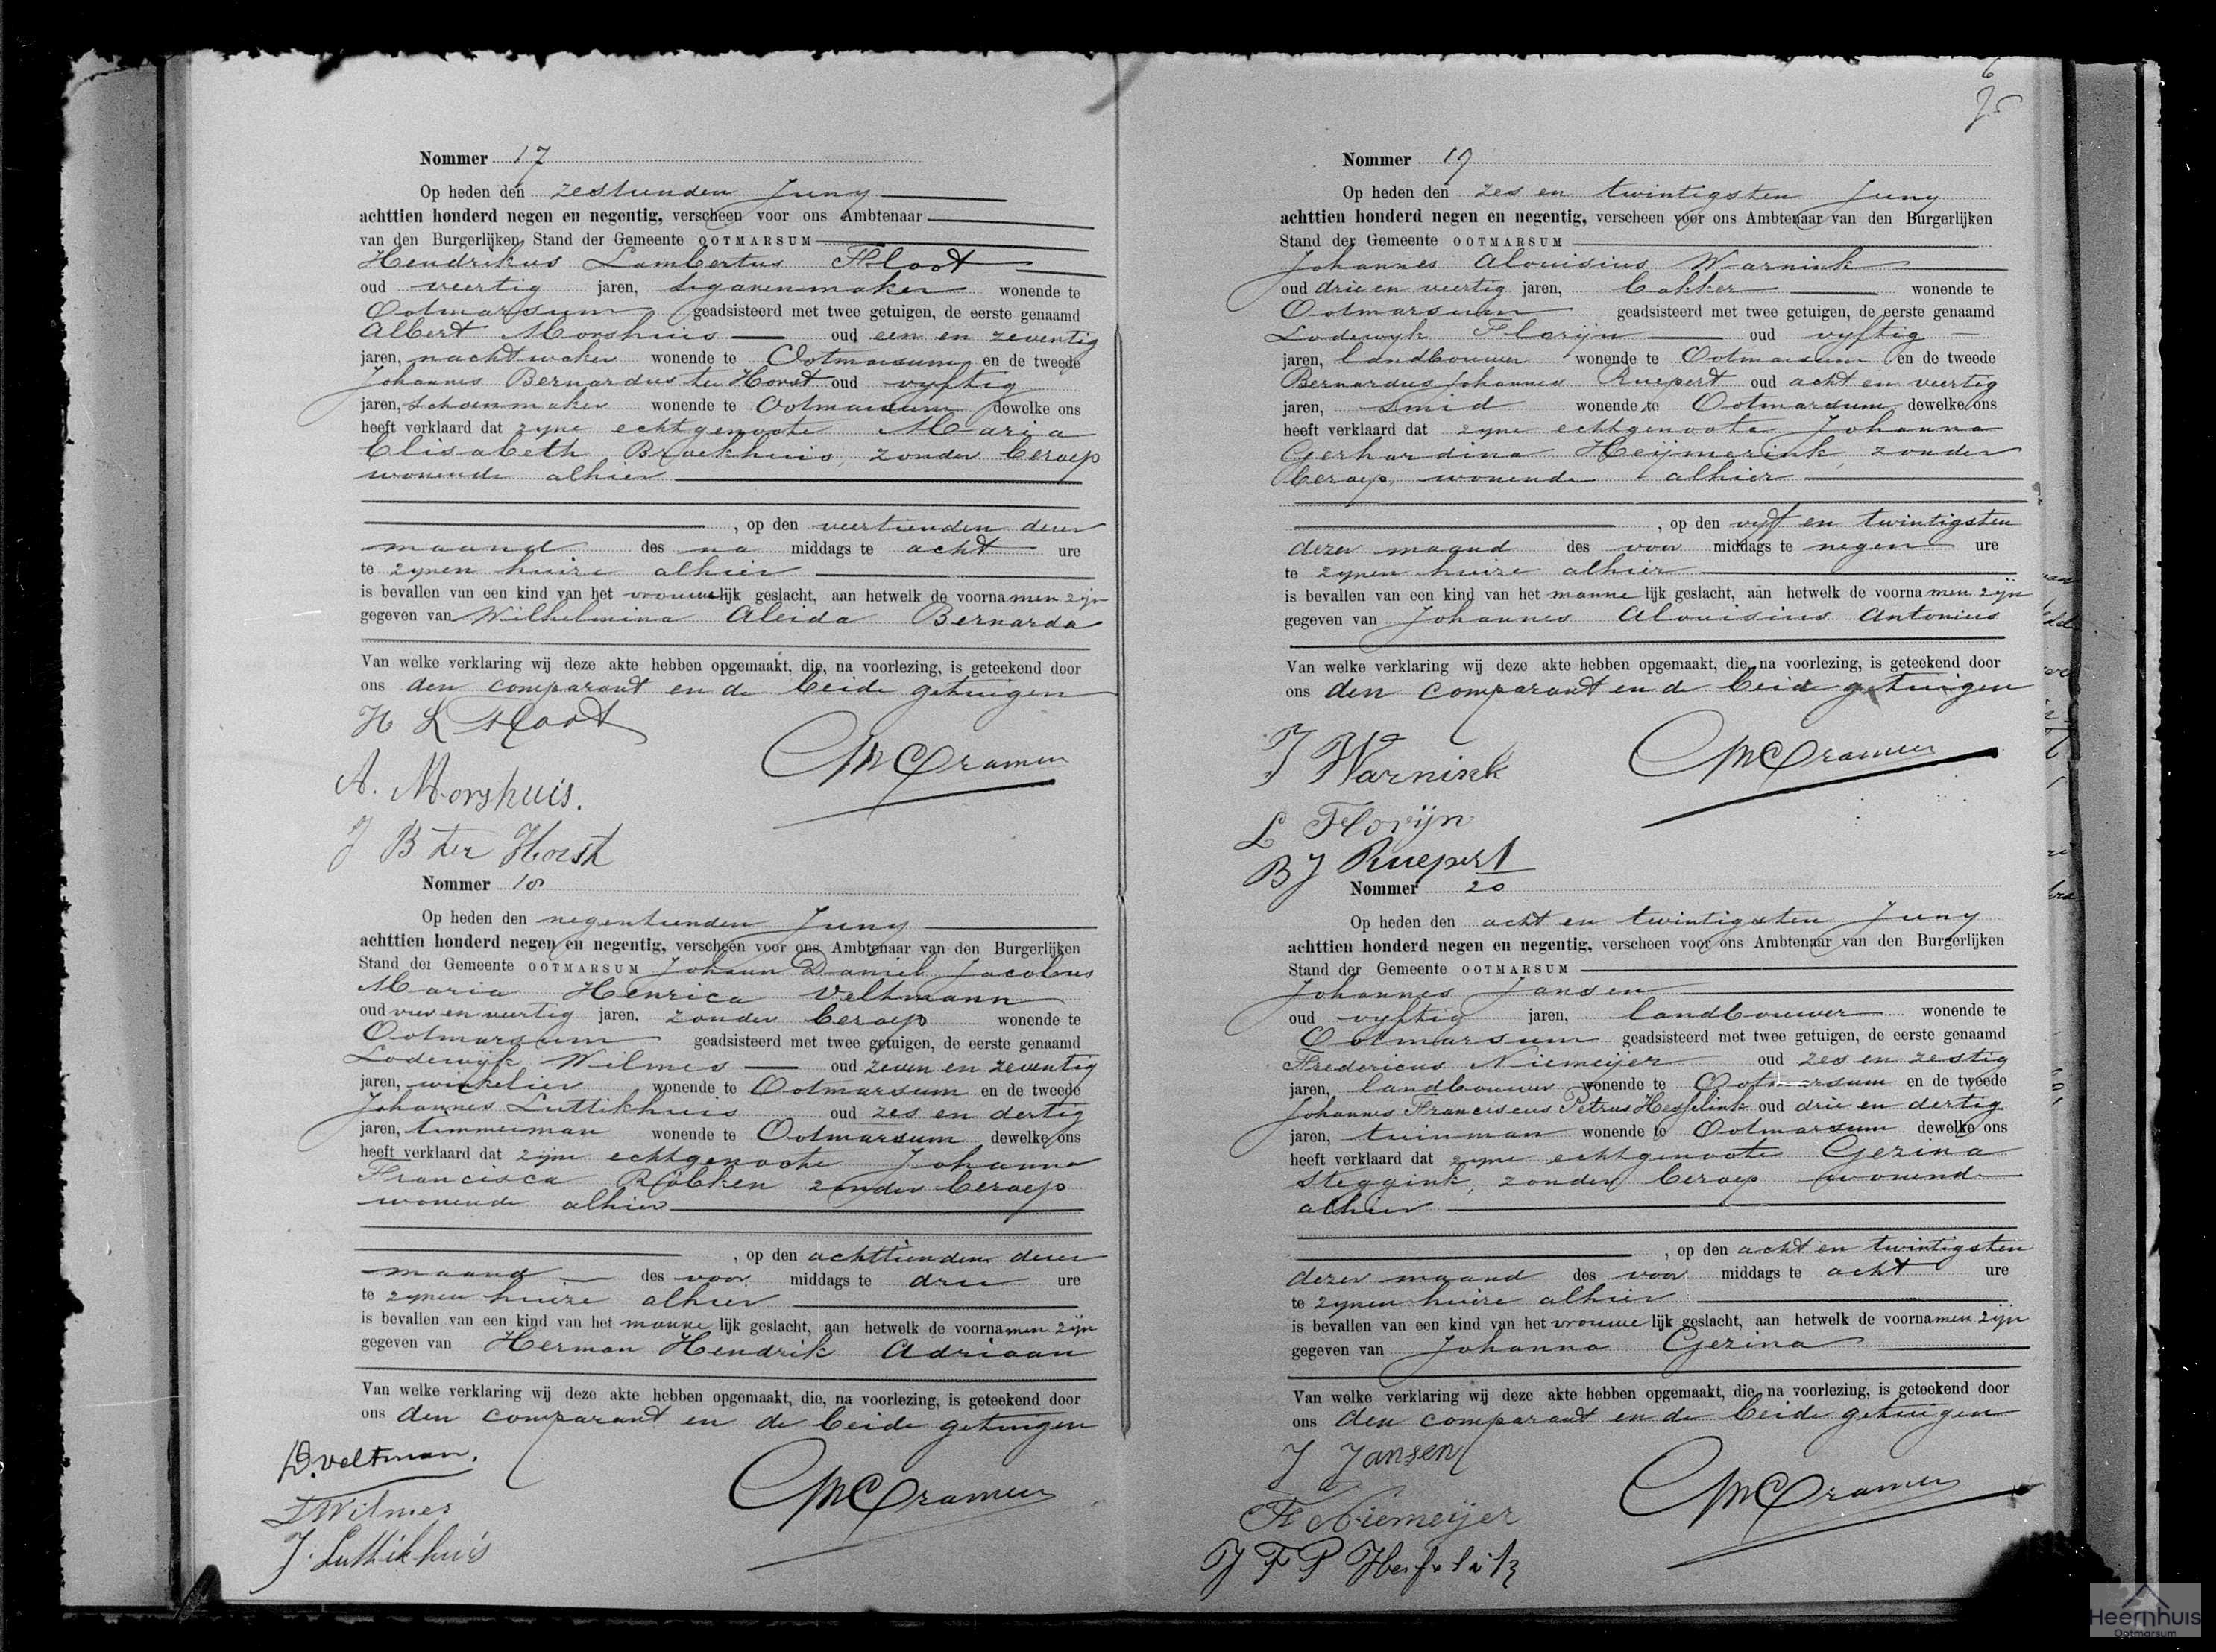 Nommer 17
Op heden den zestienden Juny
achttien honderd negen en negentig, verscheen voor ons Ambtenaar
van den Burgerlijken Stand der Gemeente OOTMARSUM
Hendrikus Lambertus Floot
oud veertig jaren, sigarenmaker wonende te
Ootmarsum geadsisteerd met twee getuigen, de eerste genaamd
Albert Morshuis oud een en zeventig
jaren, nachtwaker wonende te Ootmarsum en de tweede
Johannes Bernardus ter Horst oud vyftig
jaren, schoenmaker wonende te Ootmarsum dewelke ons
heeft verklaard dat zyne echtgenoote Maria
Elisabeth Broekhuis, zonder beroep
wonende alhier
, op den veertienden dezer
maand des na middags te acht ure
te zynen huize alhier
is bevallen van een kind van het vrouwelijk geslacht, aan hetwelk de voornamen zijn
gegeven van Wilhelmina Aleida Bernarda
Van welke verklaring wij deze akte hebben opgemaakt, die, na voorlezing, is geteekend door
ons den comparant en de beide getuigen
H L Floot
Cramer
A. Morshuis.
J B ter Horst
Nommer 18
Op heden den negentienden Juny
achttien honderd negen en negentig, verscheen voor ons Ambtenaar van den Burgerlijken
Stand der Gemeente OOTMARSUM Johann Daniel Jacobus
Maria Henrica Veltmann
oud vier en veertig jaren, zonder beroep wonende te
Ootmarsum geadsisteerd met twee getuigen, de eerste genaamd
Lodewijk Wilmes oud zeven en zeventig
jaren, winkelier wonende te Ootmarsum en de tweede
Johannes Luttikhuis oud zes en dertig
jaren, timmerman wonende te Ootmarsum dewelke ons
heeft verklaard dat zyne echtgenoote Johanna
Francisca Röbken zonder beroep
wonende alhier
, op den achttienden dezer
maand des voor middags te drie ure
te zynen huize alhier
is bevallen van een kind van het mannelijk geslacht, aan hetwelk de voornamen zijn
gegeven van Herman Hendrik Adriaan
Van welke verklaring wij deze akte hebben opgemaakt, die, na voorlezing, is geteekend door
ons den comparant en de beide getuigen
D. Veltman.
Cramer
L Wilmes
J. Luttikhuis
6
Nommer 19
Op heden den zes en twintigsten Juny
achttien honderd negen en negentig, verscheen voor ons Ambtenaar van den Burgerlijken
Stand der Gemeente OOTMARSUM
Johannes Alouisius Warnink
oud drie en veertig jaren, bakker wonende te
Ootmarsum geadsisteerd met twee getuigen, de eerste genaamd
Lodewyk Florijn oud vyftig
jaren, landbouwer wonende te Ootmarsum en de tweede
Bernardus Johannes Ruepert oud acht en veertig
jaren, smid wonende te Ootmarsum dewelke ons
heeft verklaard dat zyne echtgenoote Johanna
Gerhardina Heijmerink, zonder
beroep, wonende alhier
, op den vyf en twintigsten
dezer maand des voor middags te negen ure
te zynen huize alhier
is bevallen van een kind van het mannelijk geslacht, aan hetwelk de voornamen zijn
gegeven van Johannes Alouisius Antonius
Van welke verklaring wij deze akte hebben opgemaakt, die, na voorlezing, is geteekend door
ons den comparant en de beide getuigen
J Warnink
Cramer
L Florijn
B J Ruepert
Nommer 20
Op heden den acht en twintigsten Juny
achttien honderd negen en negentig, verscheen voor ons Ambtenaar van den Burgerlijken
Stand der Gemeente OOTMARSUM
Johannes Jansen
oud vyftig jaren, landbouwer wonende te
Ootmarsum geadsisteerd met twee getuigen, de eerste genaamd
Fredericus Niemeijer oud zes en zestig
jaren, landbouwer wonende te Ootmarsum en de tweede
Johannes Franciscus Petrus Hesselink oud drie en dertig
jaren, tuinman wonende te Ootmarsum dewelke ons
heeft verklaard dat zyne echtgenoote Gezina
Steggink, zonder beroep wonend
alhier
, op den acht en twintigsten
dezer maand des voor middags te acht ure
te zynen huize alhier
is bevallen van een kind van het vrouwelijk geslacht, aan hetwelk de voornamen zijn
gegeven van Johanna Gezina
Van welke verklaring wij deze akte hebben opgemaakt, die, na voorlezing, is geteekend door
ons den comparant en de beide getuigen
J Jansen
Cramer
F Niemeijer
J F P Hesselink
Heernhuis
Ootmarsum